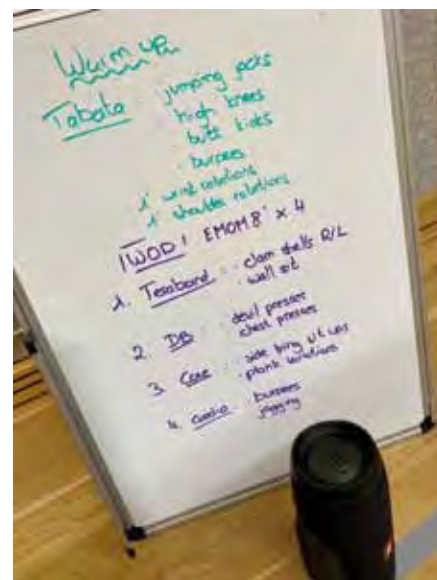 Warm up
Tabata · jumping jacks
· high knees
butt kicks
· burpees
1' wrist rotations
1' shoulder rotations
WOD EMOM 8' x 4
1. Teraband : · clam shells R/L
· wall sit
2. DB : · devil presses
· chest presses
3. Core : · side ups
· plank variations
4. Cardio : burpees
jogging